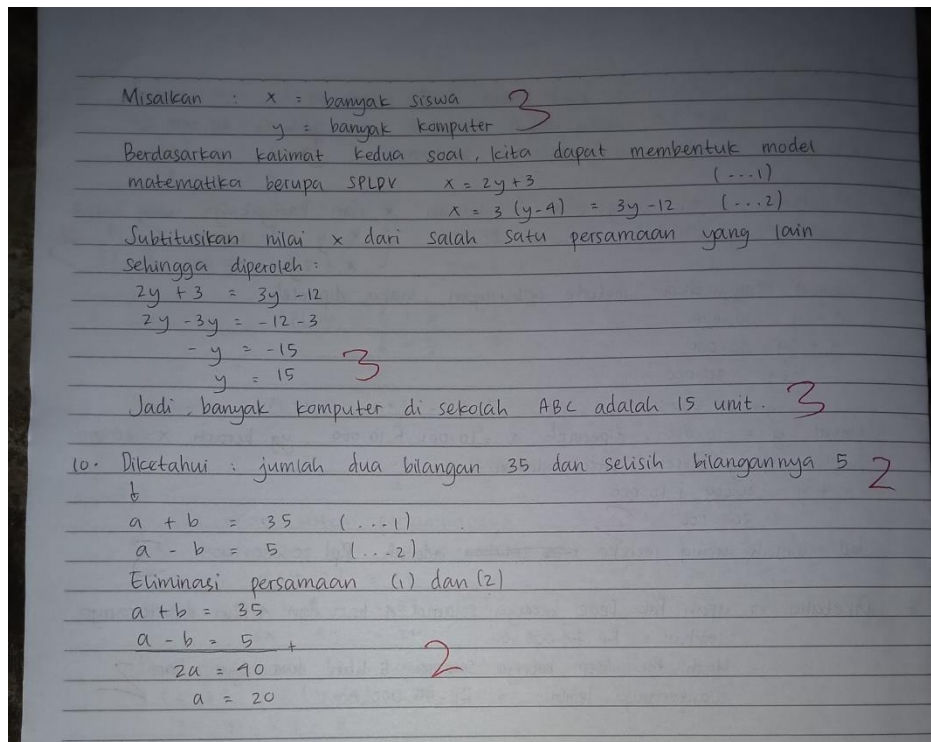 Misalkan : x = banyak siswa 3
y = banyak komputer
Berdasarkan kalimat kedua soal, kita dapat membentuk model
matematika berupa SPLDV x = 2y + 3 (...1)
x = 3 (y-4) = 3y - 12 (...2)
Subtitusikan nilai x dari salah satu persamaan yang lain
sehingga diperoleh :
2y + 3 = 3y - 12
2y - 3y = -12 - 3
- y = -15 3
y = 15
Jadi, banyak komputer di sekolah ABC adalah 15 unit. 3
10. Diketahui : jumlah dua bilangan 35 dan selisih bilangannya 5 2
a + b = 35 (...1)
a - b = 5 (...2)
Eliminasi persamaan (1) dan (2)
a + b = 35
a - b = 5 +
2a = 40 2
a = 20